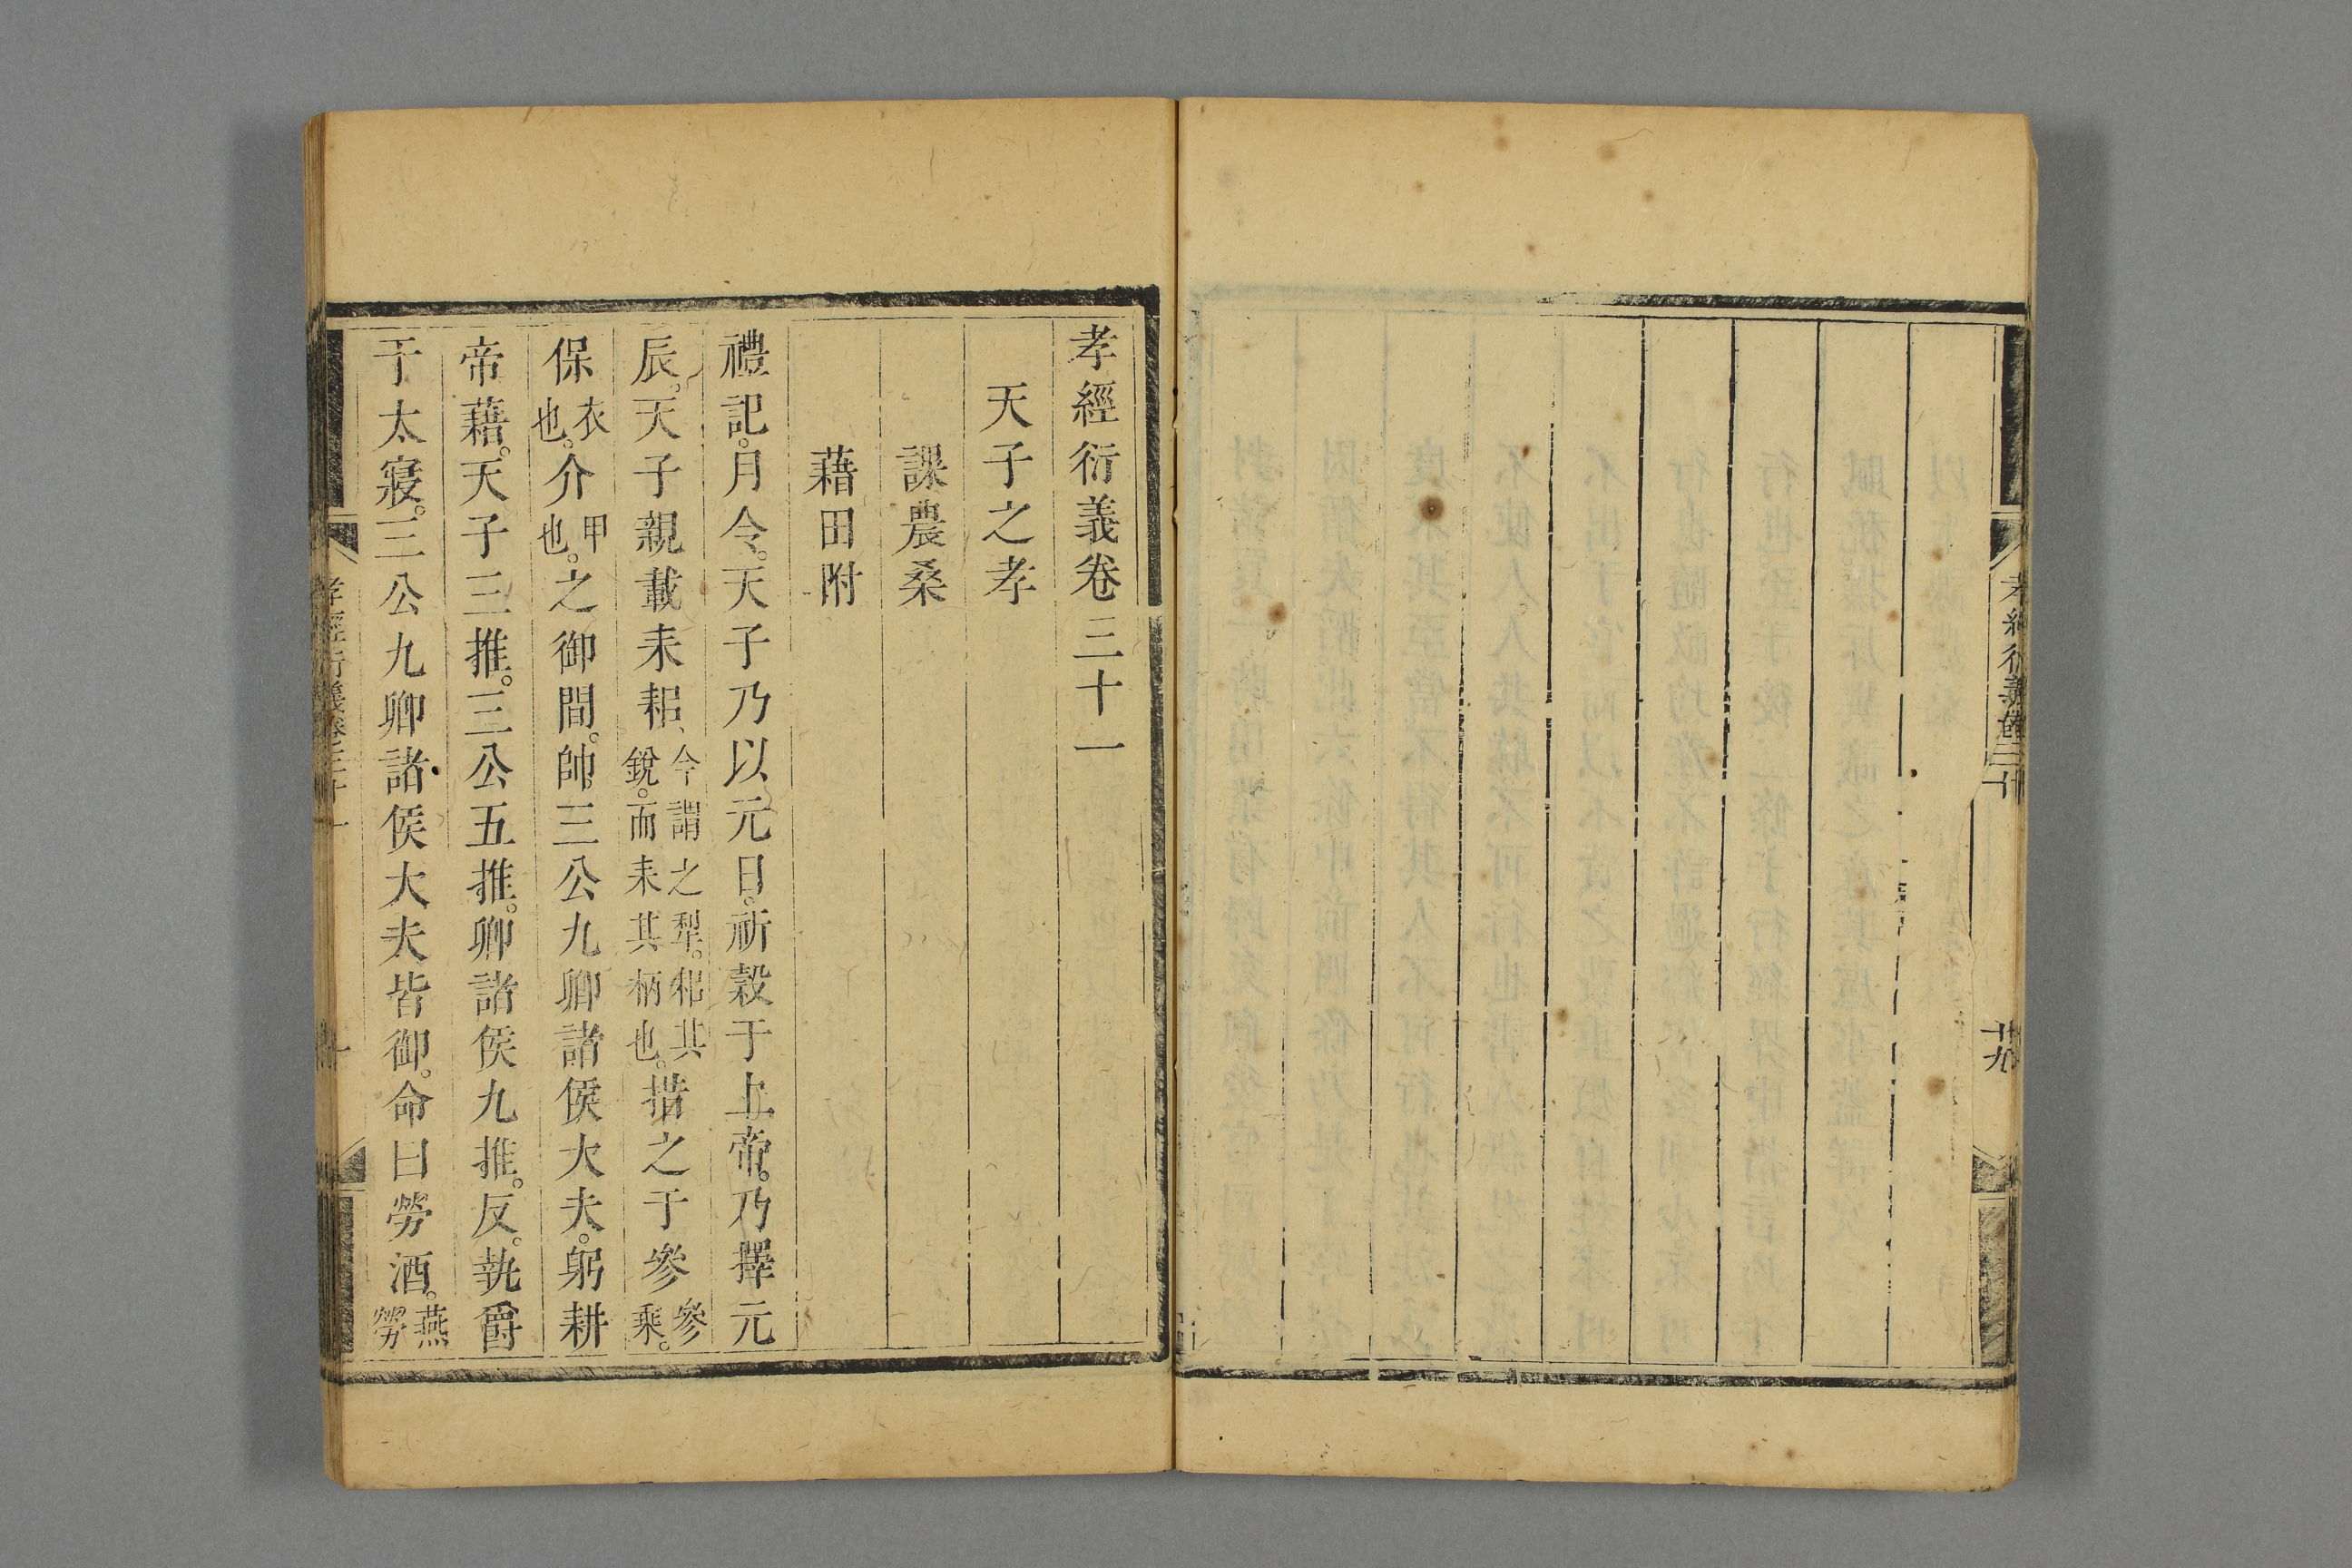 孝經衍義卷三十
十九
孝經衍義卷三十一
天子之孝
課農桑
藉田附
禮記。月令。天子乃以元日。祈穀于上帝。乃擇元
辰。天子親載耒耜、今謂之犁。耜其銳。而耒其柄也。措之于參參乘。
保衣也。介甲也。之御間。帥三公九卿諸侯大夫。躬耕
帝藉。天子三推。三公五推。卿諸侯九推。反。執爵
于太寢。三公九卿諸侯大夫皆御。命曰勞酒。燕勞
孝經衍義卷三十一
一